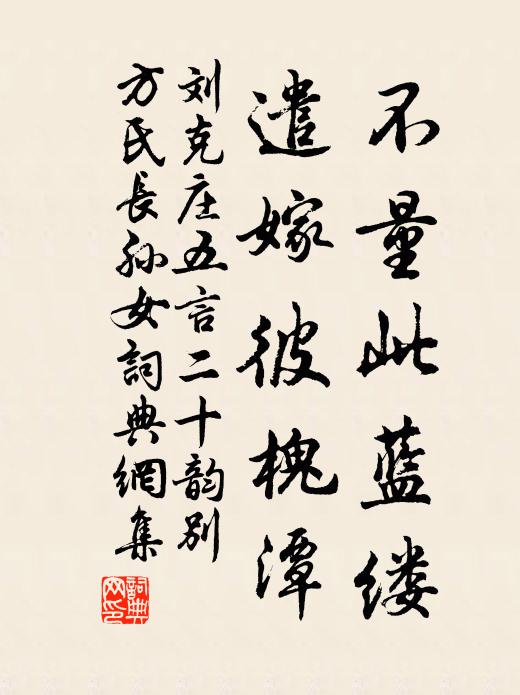 不量此蓝缕
遣嫁彼槐潭
刘克庄五言二十韵别
方氏長孙女詞典網集
詞典網印